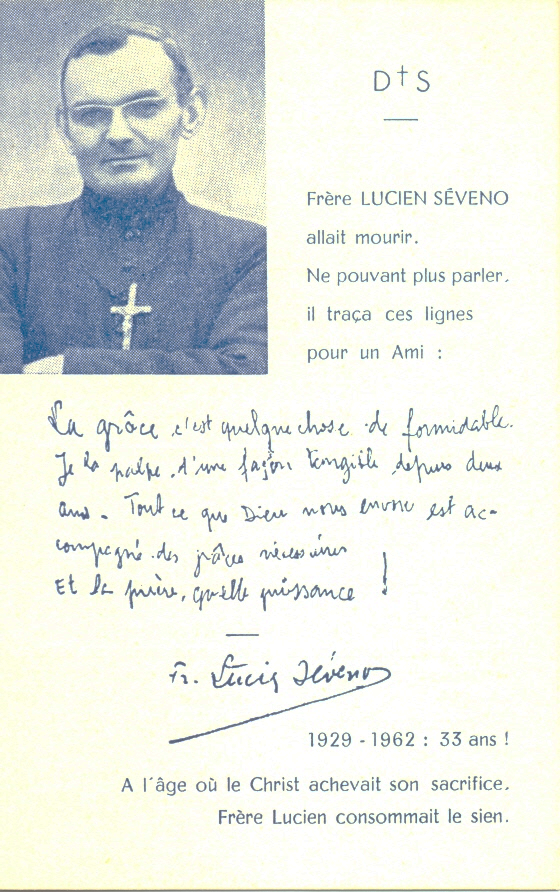 D † S
Frère LUCIEN SÉVENO
allait mourir.
Ne pouvant plus parler,
il traça ces lignes
pour un Ami :
La grâce c'est quelque chose de formidable.
Je la palpe d'une façon tangible depuis deux
ans. Tout ce que Dieu nous envoie est ac-
compagné des grâces nécessaires
Et la prière, quelle puissance !
Fr. Lucien Séveno
1929 - 1962 : 33 ans !
A l'âge où le Christ achevait son sacrifice,
Frère Lucien consommait le sien.